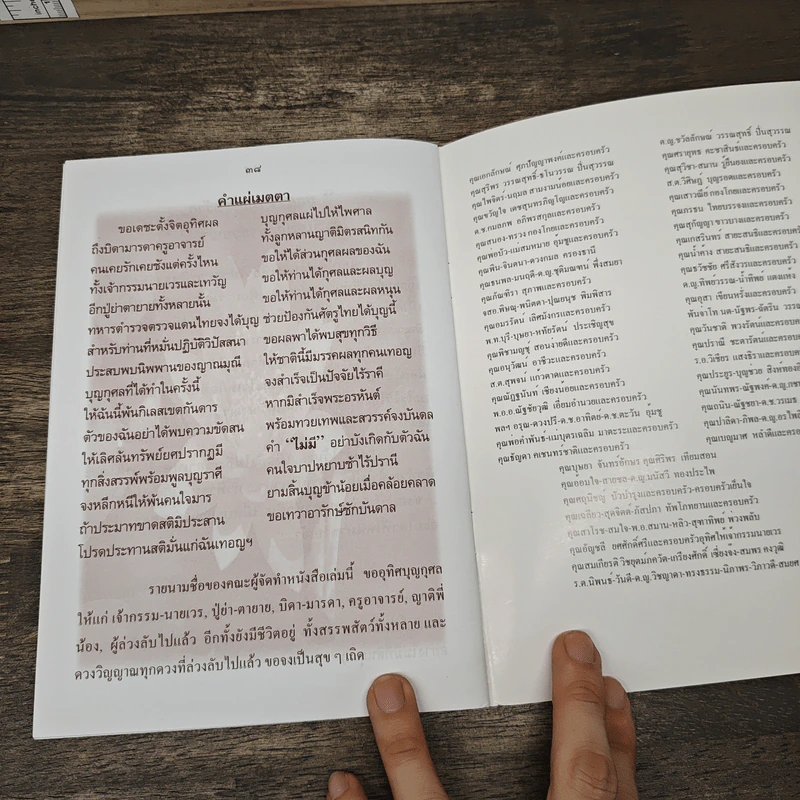 ๓๘
คำแผ่เมตตา
ขอเดชะตั้งจิตอุทิศผล บุญกุศลแผ่ไปให้ไพศาล
ถึงบิดามารดาครูอาจารย์ ทั้งลูกหลานญาติมิตรสนิทกัน
คนเคยรักเคยชังแต่ครั้งไหน ขอให้ได้ส่วนกุศลผลของฉัน
ทั้งเจ้ากรรมนายเวรและเทวัญ ขอให้ท่านได้กุศลและผลบุญ
อีกปู่ย่าตายายทั้งหลายนั้น ขอให้ท่านได้กุศลและผลหนุน
ทหารตำรวจตระเวนแดนไทยจงได้บุญ ช่วยป้องกันศัตรูไทยได้บุญนี้
สำหรับท่านที่หมั่นปฏิบัติวิปัสสนา ขอผลพาได้พบสุขทุกวิธี
ประสบพบนิพพานของญาณมุณี ให้ชาตินี้มีมรรคผลทุกคนเทอญ
บุญกุศลที่ได้ทำในครั้งนี้ จงสำเร็จเป็นปัจจัยไร้ราคี
ให้ฉันนี้พ้นกิเลสเขตกันดาร หากมิสำเร็จพระอรหันต์
ตัวของฉันอย่าได้พบความขัดสน พร้อมทวยเทพและสวรรค์จงบันดล
ให้เลิศล้นทรัพย์ยศปรากฏมี คำ “ไม่มี” อย่าบังเกิดกับตัวฉัน
ทุกสิ่งสรรพ์พร้อมพูลบุญราศี คนใจบาปหยาบช้าไร้ปรานี
จงหลีกหนีให้พ้นคนใจมาร ยามสิ้นบุญข้าน้อยเมื่อคล้อยคลาด
ถ้าประมาทขาดสติมิประสาน ขอเทวาอารักษ์ชักบันดาล
โปรดประทานสติมั่นแก่ฉันเทอญฯ
รายนามชื่อของคณะผู้จัดทำหนังสือเล่มนี้ ขออุทิศบุญกุศล
ให้แก่ เจ้ากรรม-นายเวร, ปู่ย่า-ตายาย, บิดา-มารดา, ครูอาจารย์, ญาติพี่
น้อง, ผู้ล่วงลับไปแล้ว อีกทั้งยังมีชีวิตอยู่ ทั้งสรรพสัตว์ทั้งหลาย และ
ดวงวิญญาณทุกดวงที่ล่วงลับไปแล้ว ขอจงเป็นสุข ๆ เถิด
คุณเอกลักษณ์ ศุภปัญญาพงค์และครอบครัว
คุณสุริพร วรรณสุทธิ์-ธโนวรรณ ปิ่นสุวรรณ
คุณไพจิตร-นฤมล สามงามน้อยและครอบครัว
คุณขวัญใจ เดชสุนทรภิญโญและครอบครัว
ด.ช.กมลภพ อภิพรสกุลและครอบครัว
คุณสนอง-ทรวง กองไกยและครอบครัว
คุณพ่อบัว-แม่สมหมาย อุ้มชูและครอบครัว
คุณพิน-จินตนา-ดวงกมล ครองธานี
คุณภัณฑิรา สุภาพและครอบครัว
คุณอมรรัตน์ เลิศมังกรและครอบครัว
คุณพิชามญชุ์ สอนง่ายดีและครอบครัว
คุณอนุวัฒน์ อาชีวะและครอบครัว
ส.ต.สุพจน์ แก้วตาดและครอบครัว
คุณณัฏฐนันท์ เชียงน้อยและครอบครัว
คุณธัญดา คเชนทร์ชาติและครอบครัว
ด.ญ.ชวัลลักษณ์ วรรณสุทธิ์ ปิ่นสุวรรณ
คุณศรายุทธ คะชาสินธ์และครอบครัว
คุณสุวีชา-สมาน รู้ยืนยงและครอบครัว
ส.ต.วิศิษฎ์ บุญรอดและครอบครัว
คุณเสาวณีย์ กองไกยและครอบครัว
คุณกรธน ไทยบรรจงและครอบครัว
คุณสุกัญญา ขาวบางและครอบครัว
คุณเกสรินทร์ สายะสนธิและครอบครัว
คุณน้ำค้าง สายะสนธิและครอบครัว
คุณธวัชชัย ศรีสังวรและครอบครัว
คุณบุษยา จันทร์อักษร คุณศิริพร เทียมสอน
คุณอ้อมใจ-สายชล-ด.ญ.มนัสวี ทองประไพ
คุณศฤนิชญ์ บัวบำรุงและครอบครัว-ครอบครัวเย็นใจ
คุณเฉลียว-สุดจิตต์-ภัสปภา ทัพโภทยานและครอบครัว
คุณสาโรช-สมใจ-พ.อ.สมาน-หลิว-สุฑาทิพย์ พ่วงพลับ
คุณอัญชลี ยศศักดิ์ศรีและครอบครัวอุทิศให้เจ้ากรรมนายเวร
คุณสมเกียรติ วิชยุตม์ภควัต-เกรียงศักดิ์ เซี่ยงจ๊ง-สมพร คงวุฒิ
ร.ต.นิพนธ์-วันดี-ด.ญ.วิชญาดา-ทรงธรรม-นิภาพร-วิภาวดี-สมยศ